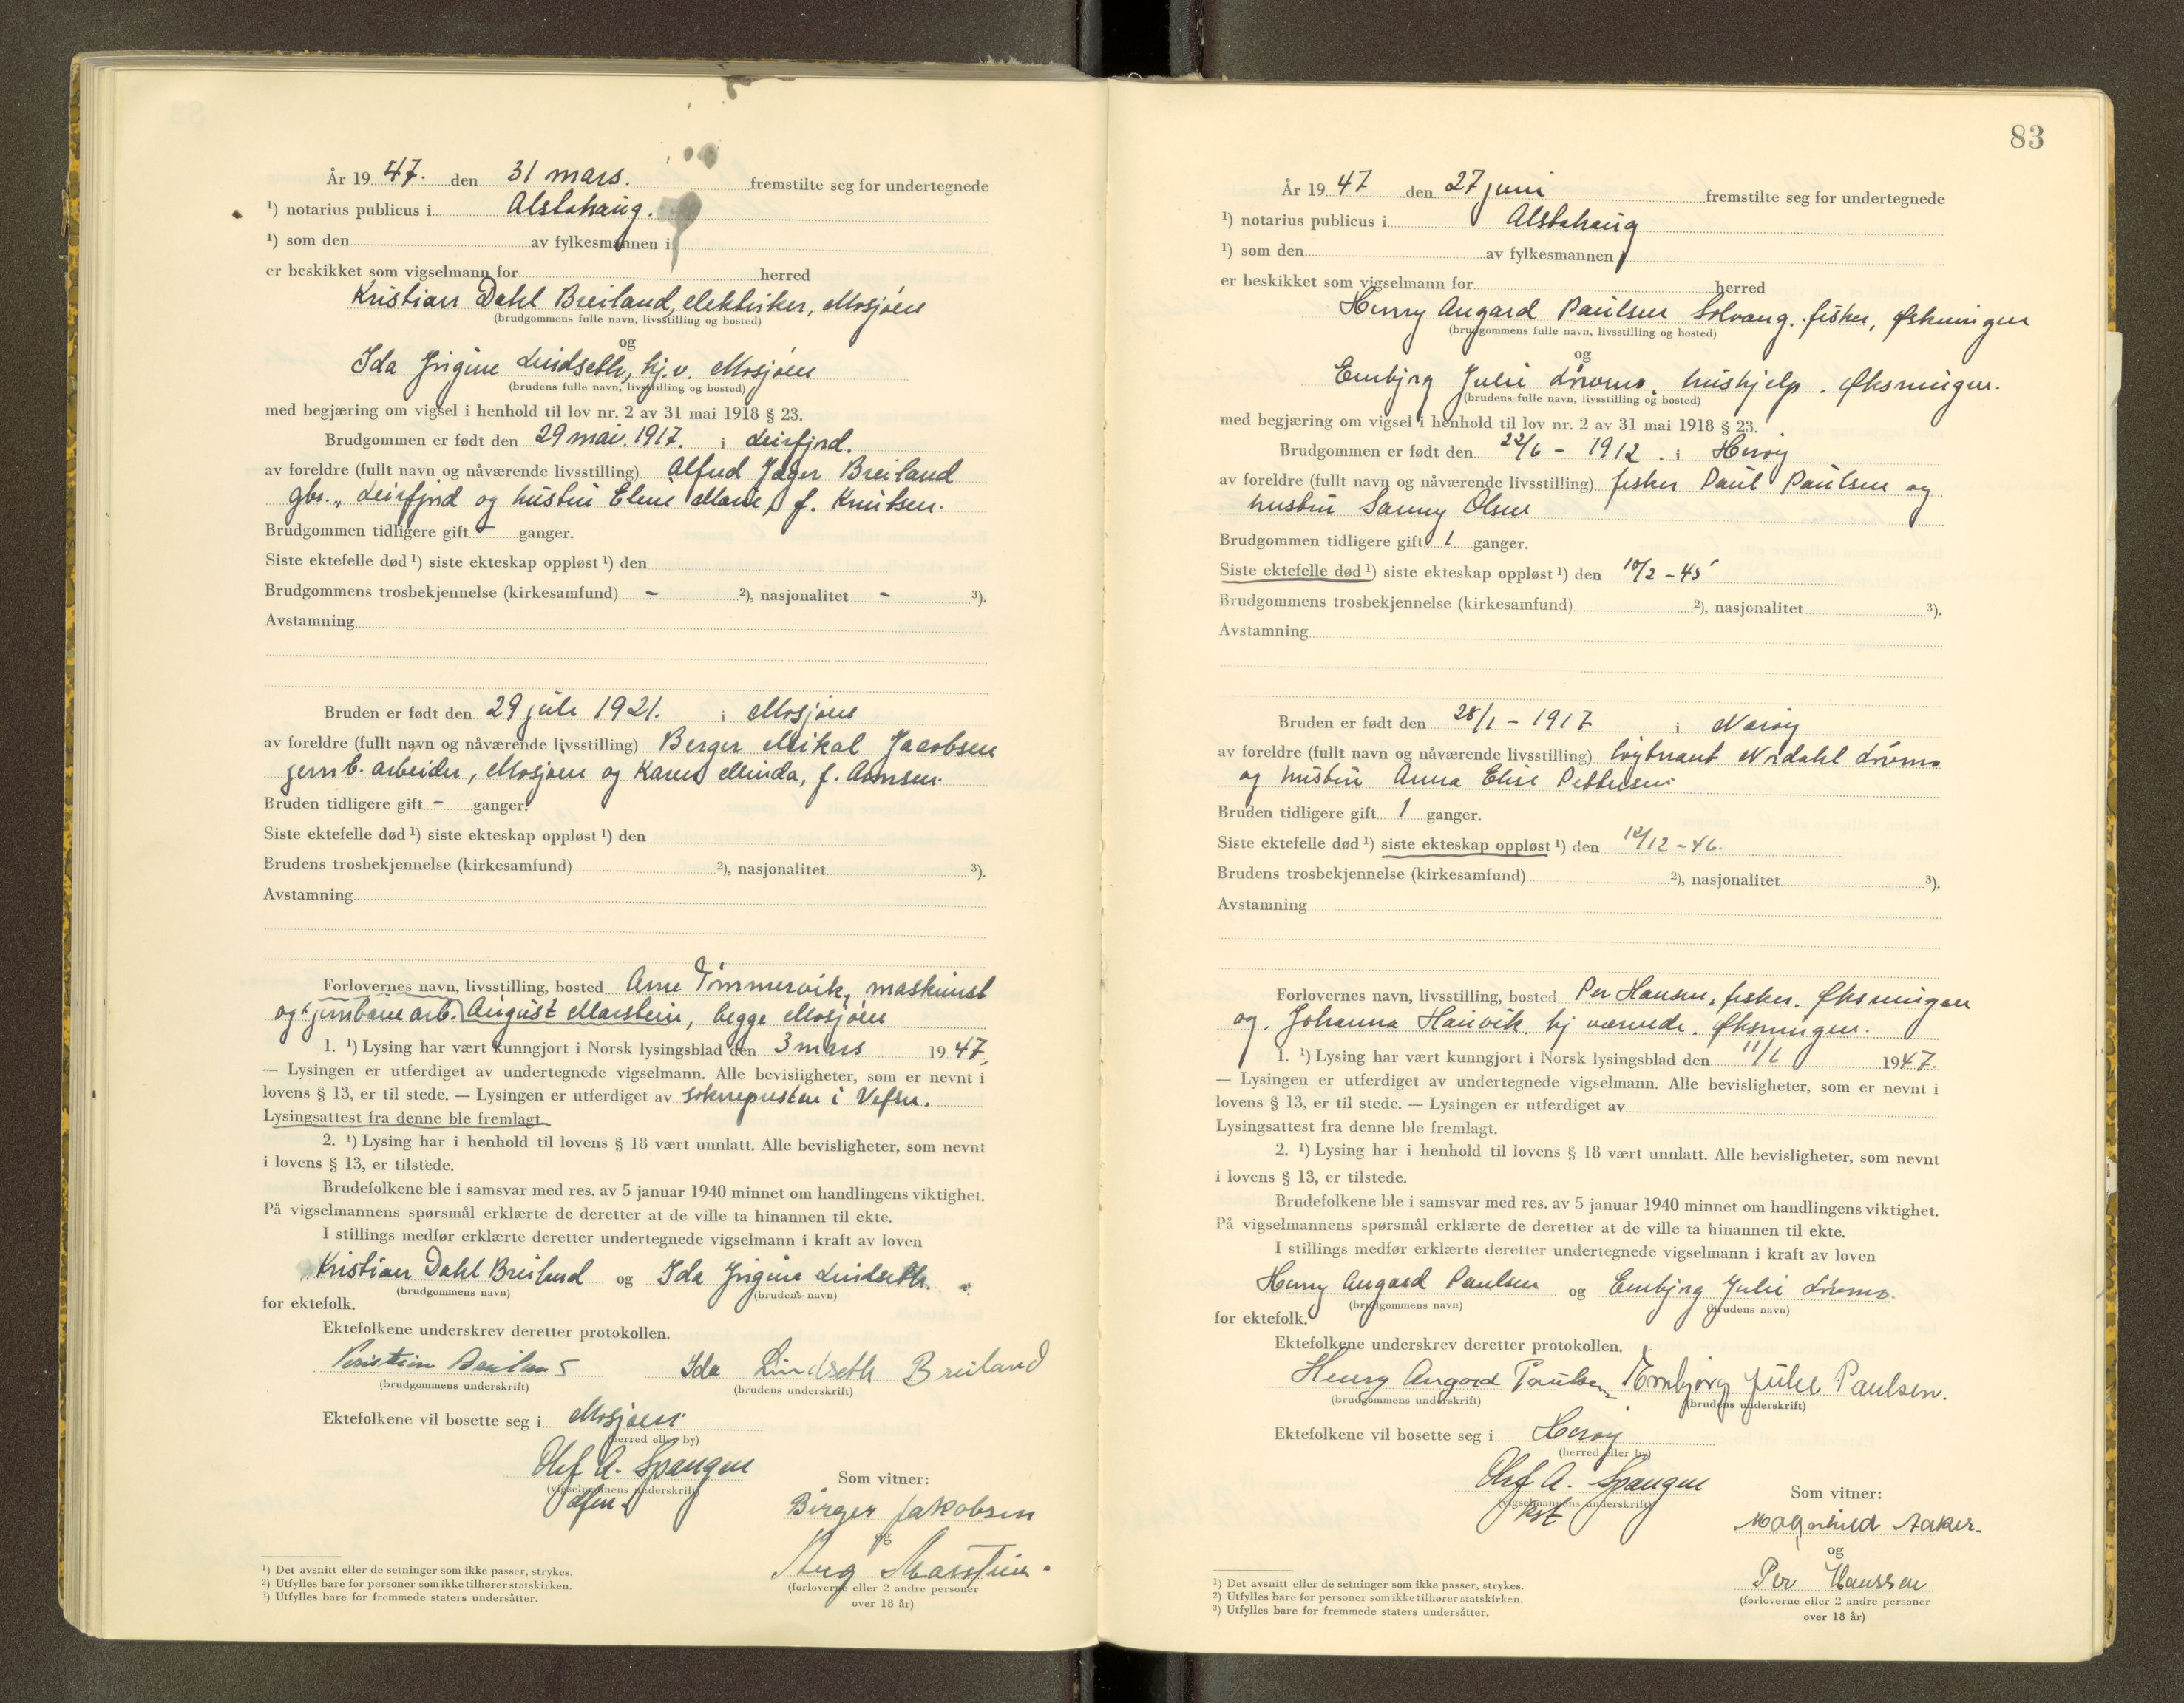 År 19 47. den 31 mars. fremstilte seg for undertegnede
¹) notarius publicus i Alstahaug.
¹) som den av fylkesmannen i
er beskikket som vigselmann for herred
Kristian Dahl Breiland, elektriker, Mosjøen
(brudgommens fulle navn, livsstilling og bosted)
og
Ida Jrigine Lindseth, hj.v. Mosjøen
(brudens fulle navn, livsstilling og bosted)
med begjæring om vigsel i henhold til lov nr. 2 av 31 mai 1918 § 23.
Brudgommen er født den 29 mai. 1917. i Leirfjord.
av foreldre (fullt navn og nåværende livsstilling) Alfred Jager Breiland
gbr., Leirfjord og hustru Elene Marie, f. Knutsen.
Brudgommen tidligere gift - ganger.
Siste ektefelle død ¹) siste ekteskap oppløst ¹) den
Brudgommens trosbekjennelse (kirkesamfund) - ²), nasjonalitet - ³).
Avstamning
Bruden er født den 29 juli 1921. i Mosjøen
av foreldre (fullt navn og nåværende livsstilling) Berger Mikal Jacobsen
jernb. arbeider, Mosjøen og Karen Minda, f.
Bruden tidligere gift - ganger.
Siste ektefelle død ¹) siste ekteskap oppløst ¹) den
Brudens trosbekjennelse (kirkesamfund) ²), nasjonalitet ³).
Avstamning
Forlovernes navn, livsstilling, bosted Arne Tømmervik, maskinist
og jernbanearb. August Marstein, begge Mosjøen
1. ¹) Lysing har vært kunngjort i Norsk lysingsblad den 3 mars 19 47,
— Lysingen er utferdiget av undertegnede vigselmann. Alle bevisligheter, som er nevnt i
lovens § 13, er til stede. — Lysingen er utferdiget av soknepresten i Vefsn.
Lysingsattest fra denne ble fremlagt.
2. ¹) Lysing har i henhold til lovens § 18 vært unnlatt. Alle bevisligheter, som nevnt
i lovens § 13, er tilstede.
Brudefolkene ble i samsvar med res. av 5 januar 1940 minnet om handlingens viktighet.
På vigselmannens spørsmål erklærte de deretter at de ville ta hinannen til ekte.
I stillings medfør erklærte deretter undertegnede vigselmann i kraft av loven
Kristian Dahl Breiland og Ida Jrigine Lindseth.
(brudgommens navn) (brudens navn)
for ektefolk.
Ektefolkene underskrev deretter protokollen.
Kristian Breiland Ida Lindseth Breiland
(brudgommens underskrift) (brudens underskrift)
Ektefolkene vil bosette seg i Mosjøen.
(herred eller by)
Olef A. Spangen
(vigselmannens underskrift)
Som vitner:
Birger Jakobsen
og
Aug Marstein.
(forloverne eller 2 andre personer
over 18 år)
¹) Det avsnitt eller de setninger som ikke passer, strykes.
²) Utfylles bare for personer som ikke tilhører statskirken.
³) Utfylles bare for fremmede staters undersåtter.
83
År 19 47 den 27 juni fremstilte seg for undertegnede
¹) notarius publicus i Alstahaug
¹) som den av fylkesmannen i
er beskikket som vigselmann for herred
Henry Angard Paulsen Solvang. fisker, Øksningen
(brudgommens fulle navn, livsstilling og bosted)
og
Embjrg Julie Løvmo, hushjelp. Øksningen.
(brudens fulle navn, livsstilling og bosted)
med begjæring om vigsel i henhold til lov nr. 2 av 31 mai 1918 § 23.
Brudgommen er født den 22/6 - 1912. i Herøy
av foreldre (fullt navn og nåværende livsstilling) fisker Paul Paulsen og
hustru Sanny Olsen
Brudgommen tidligere gift 1 ganger.
Siste ektefelle død ¹) siste ekteskap oppløst ¹) den 10/2 - 45
Brudgommens trosbekjennelse (kirkesamfund) ²), nasjonalitet ³).
Avstamning
Bruden er født den 28/1 - 1917 i Nærøy
av foreldre (fullt navn og nåværende livsstilling) løytnant Nordahl Løvmo
og hustru Anna Elise Pettersen
Bruden tidligere gift 1 ganger.
Siste ektefelle død ¹) siste ekteskap oppløst ¹) den 12/12 - 46.
Brudens trosbekjennelse (kirkesamfund) ²), nasjonalitet ³).
Avstamning
Forlovernes navn, livsstilling, bosted Per Hansen, fisker. Øksningen
og. Johanna Hauvik. hj værende. Øksningen.
1. ¹) Lysing har vært kunngjort i Norsk lysingsblad den 11/6 1947.
— Lysingen er utferdiget av undertegnede vigselmann. Alle bevisligheter, som er nevnt i
lovens § 13, er til stede. — Lysingen er utferdiget av
Lysingsattest fra denne ble fremlagt.
2. ¹) Lysing har i henhold til lovens § 18 vært unnlatt. Alle bevisligheter, som nevnt
i lovens § 13, er tilstede.
Brudefolkene ble i samsvar med res. av 5 januar 1940 minnet om handlingens viktighet.
På vigselmannens spørsmål erklærte de deretter at de ville ta hinannen til ekte.
I stillings medfør erklærte deretter undertegnede vigselmann i kraft av loven
Henry Angard Paulsen og Embjrg Julie Løvmo.
(brudgommens navn) (brudens navn)
for ektefolk.
Ektefolkene underskrev deretter protokollen.
Henry Angard Paulsen Embjørg Julie Paulsen.
(brudgommens underskrift) (brudens underskrift)
Ektefolkene vil bosette seg i Herøy
(herred eller by)
Olef A. Spangen
(vigselmannens underskrift)
kst
Som vitner:
Magnhild Aaker.
og
Per Hanssen
(forloverne eller 2 andre personer
over 18 år)
¹) Det avsnitt eller de setninger som ikke passer, strykes.
²) Utfylles bare for personer som ikke tilhører statskirken.
³) Utfylles bare for fremmede staters undersåtter.